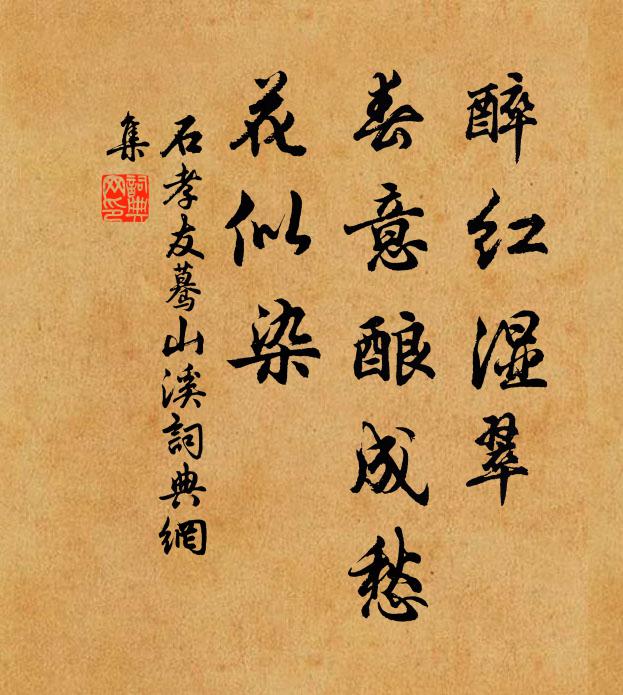 醉红湿翠
春意酿成愁
花似染
石孝友蓦山溪詞典網
集
詞典
网印